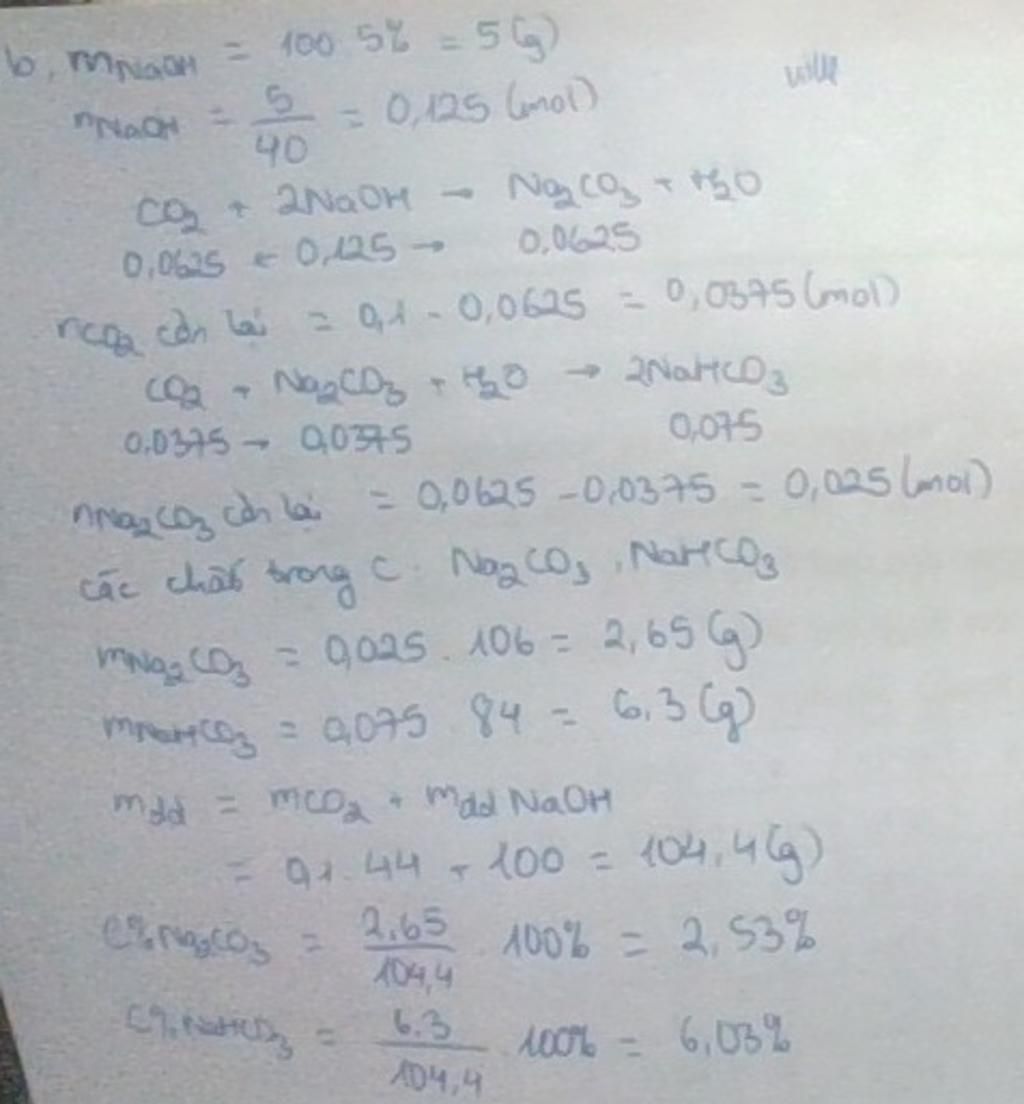 b, mNaOH = 100 5% = 5 (g)
nNaOH = 5/40 = 0,125 (mol)
CO2 + 2NaOH → Na2CO3 + H2O
0,0625 ← 0,125 → 0,0625
nCO2 còn lại = 0,1 - 0,0625 = 0,0375 (mol)
CO2 + Na2CO3 + H2O → 2NaHCO3
0,0375 → 0,0375 0,075
nNa2CO3 còn lại = 0,0625 - 0,0375 = 0,025 (mol)
các chất trong C. Na2CO3, NaHCO3
mNa2CO3 = 0,025 . 106 = 2,65 (g)
mNaHCO3 = 0,075 84 = 6,3 (g)
mdd = mCO2 + mdd NaOH
= 0,1. 44 + 100 = 104,4 (g)
C% Na2CO3 = 2,65/104,4 . 100% = 2,53%
C% NaHCO3 = 6.3/104,4 100% = 6,03%